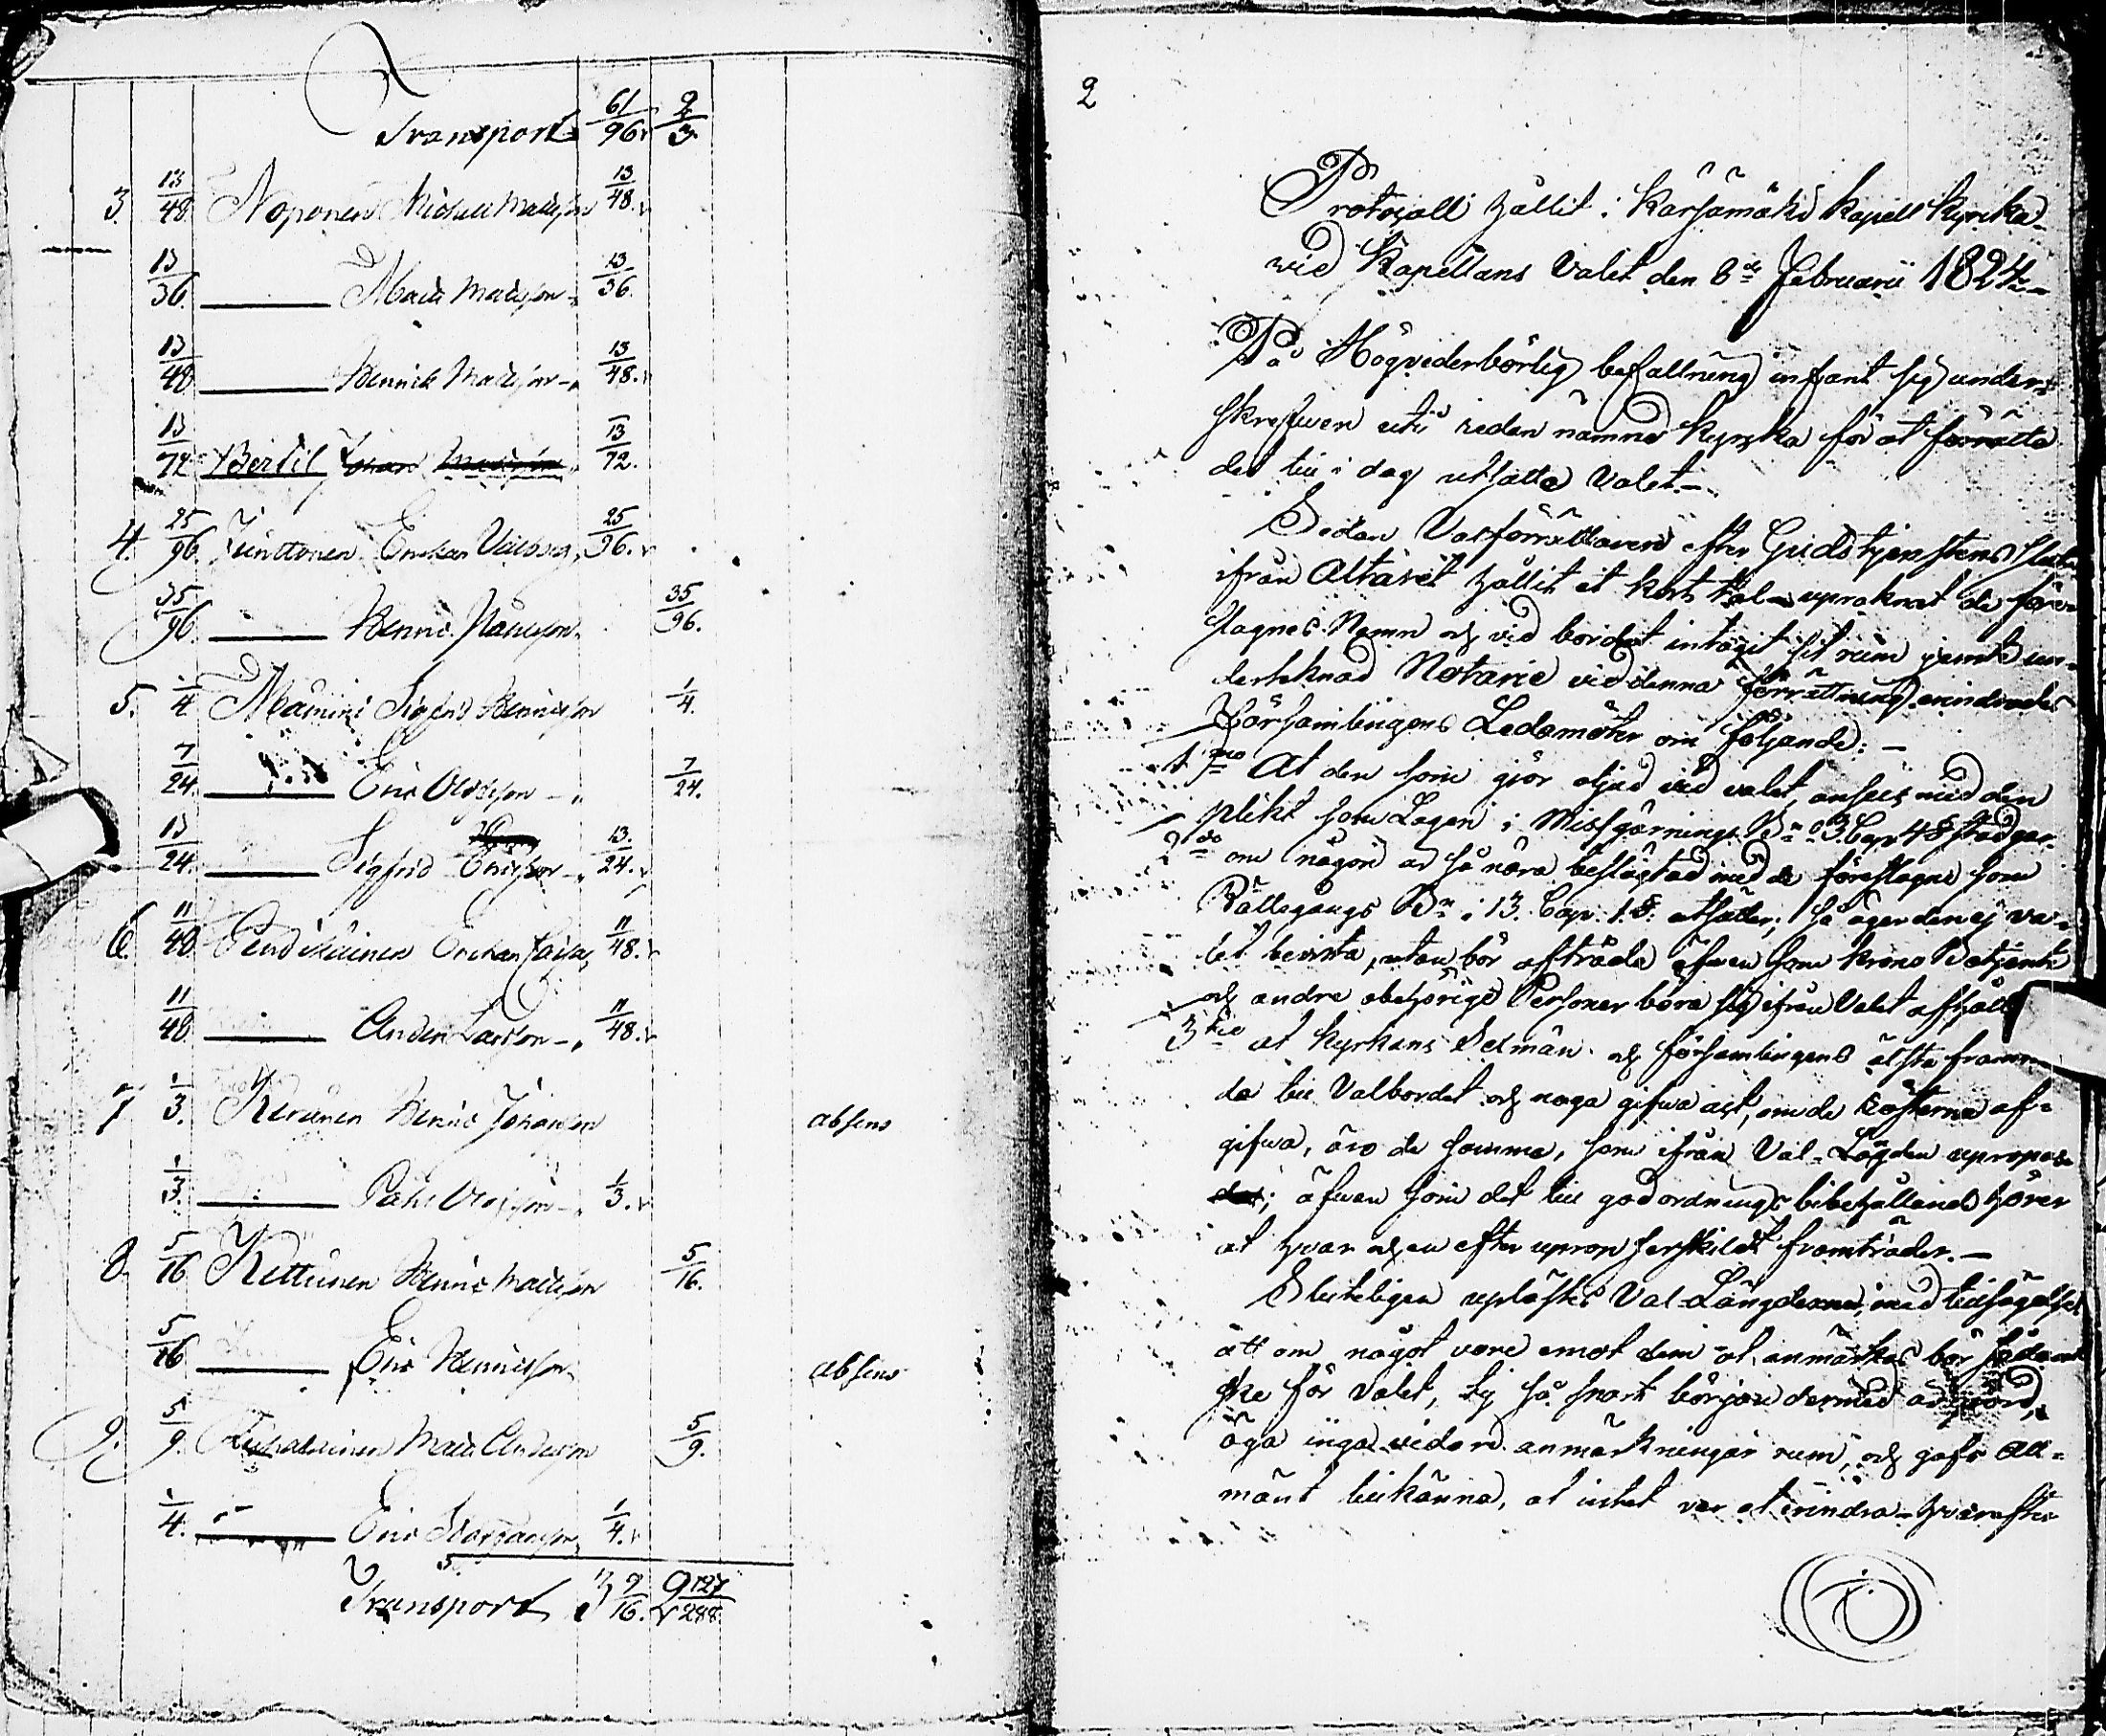 Transport 61/96. 2/3.
3. 13/48 Noponen Michel Matsson 13/48.
13/36. Matts Matsson 13/36.
13/48 Henrick Matsson 13/48.
13/72 Bertil Johan Matsson 13/72.
4. 25/96. Junttonen Enckan Valborg 25/96.
35/96. Henric Påulsson 35/96.
5. 1/4 Mäninen Sigfrid Henricsson 1/4.
7/24. Eric Olofsson 7/24.
13/24. Sigfrid Ericsson 13/24.
6. 11/48 Pendikäinen Enckan Caisa 11/48.
11/48 Anders Larsson 11/48.
7 1/3. Keränen Henric Johansson absens
1/3. Påhl Olofsson 1/3.
8. 5/16 Kettunen Henric Mattsson 5/16.
5/16 Eric Henricsson absens
9. 5/9. Matts Andersson 5/9.
1/4. Eric 1/4.
Transport 3 9/16. 2 127/288.
2
Protocoll hållit i Kärsämäki Kapell Kyrcka
wid Kapellans Valet den 8de Februarii 1824.
På Högvederbörlig befallning infant sig under-
skrefwen uti redan nämnde Kyrcka för at förrätta
det till i dag utsatte Valet.
Sedan Valförrättaren efter Gudstjenstens slut
ifrån Altaret hållit et kort tal upräknat de före-
slagnes Namn och vid bordet intagit sit rum jemte un-
derteknad Notarie vid denna förrättning erindrades
Församlingens Ledamöter om följande:
1mo At den som giör oljud vid valet, anses med den
plikt som Lagen i Missgärnings Bn 3 Cap 4 § stadgar.
2do om någon är så nära beslägtad med de föreslagne som
Rättegångs Bn i 13. Cap. 1 §. utsätter, så äger den ej va-
let bevista, utan bör afträda äfwen som Krono Betjente
och andre obehörige Personer böra sig ifrån Valet afhålla
3tio at Kyrkans Sexmän och församlingens älsta framm
da till Valbordet och noga gifwa akt, om de rösterna af-
gifwa, äro de samma, som ifrån Val-Längden upropas
das; äfwen som det till god ordnings bibehållande hörer
at hvar och en efter uprop serskildt framträder.
Sluteligen uplästes Val-Längderne, med tillsägelse
att om något vore emot dem at anmärkas bör sådant
ske för Valet, ty så snart början dermed är gjord,
äga inga vidare anmärkningar rum, och gafs all-
mänt tillkänna, at intet var at erindra – hvarefter